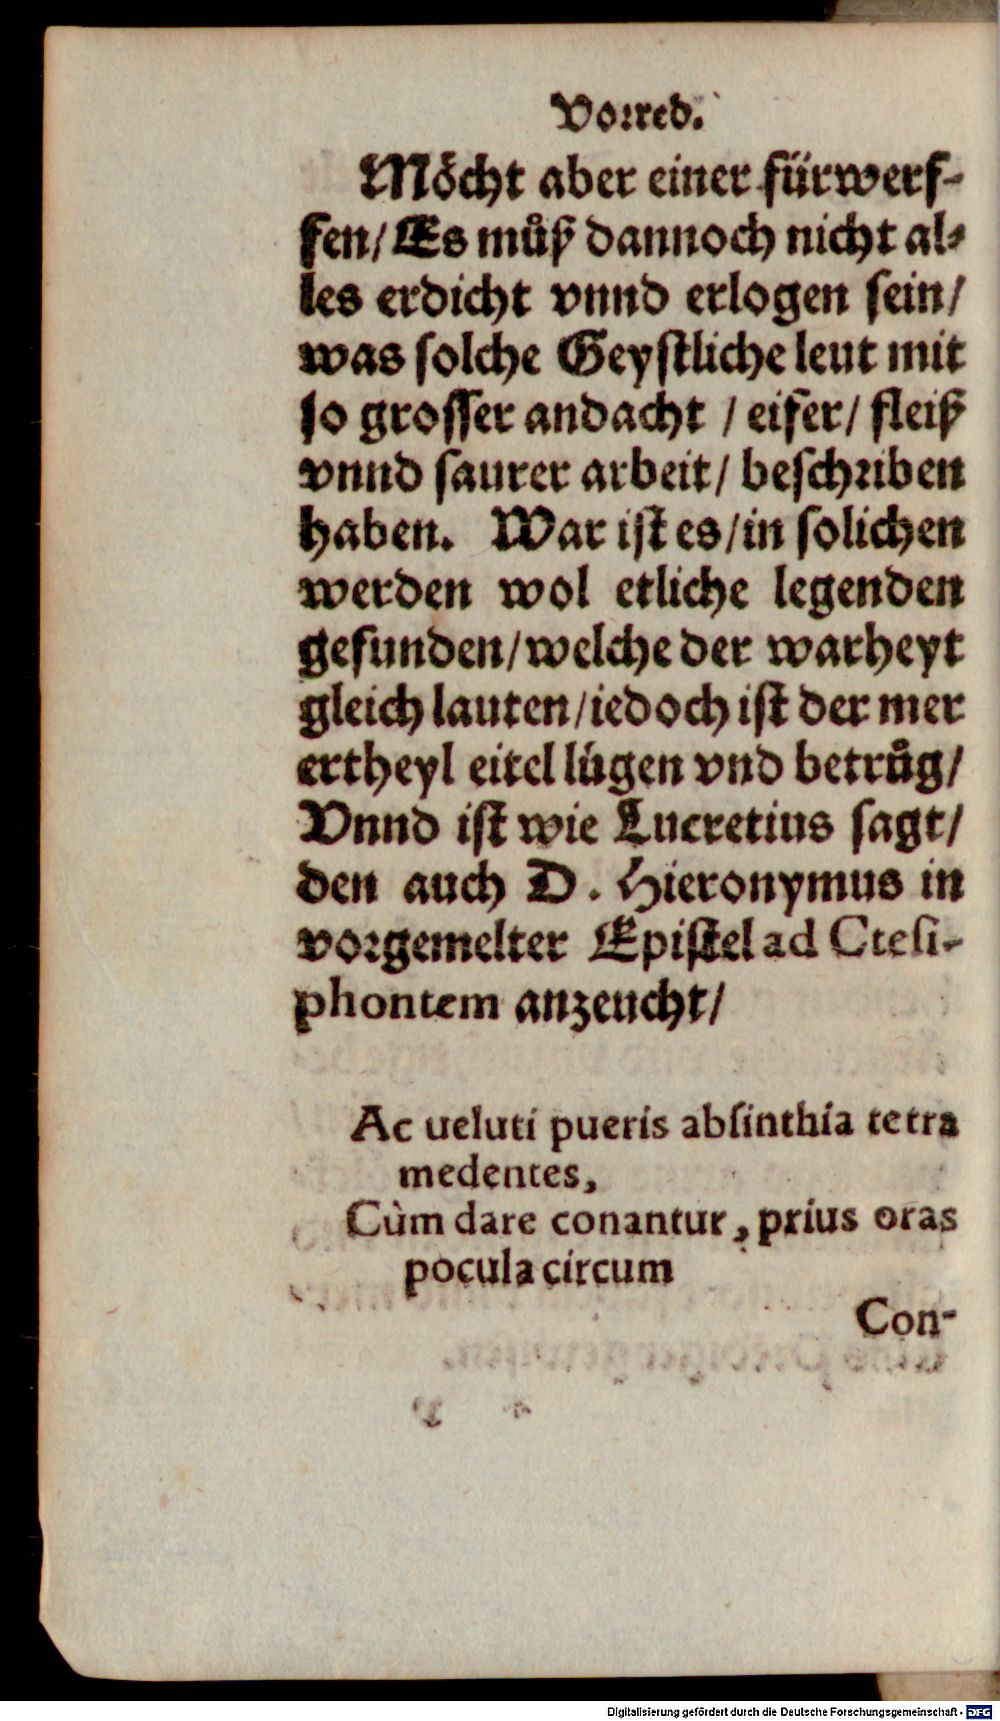 Vorred.
Möcht aber einer fürwerf-
fen/ Es můß dannoch nicht al-
les erdicht vnnd erlogen sein/
was solche Geystliche leut mit
so grosser andacht / eifer/ fleiß
vnnd saurer arbeit/ beschriben
haben. War ist es/ in solichen
werden wol etliche legenden
gefunden/ welche der warheyt
gleich lauten/ iedoch ist der mer
ertheyl eitel lügen vnd betrůg/
Vnnd ist wie Lucretius sagt/
den auch D. Hieronymus in
vorgemelter Epistel ad Ctesi-
phontem anzeucht/
Ac ueluti pueris absinthia tetra
medentes,
Cùm dare conantur, prius oras
pocula circum
Con-
Digitalisierung gefördert durch die Deutsche Forschungsgemeinschaft - DFG